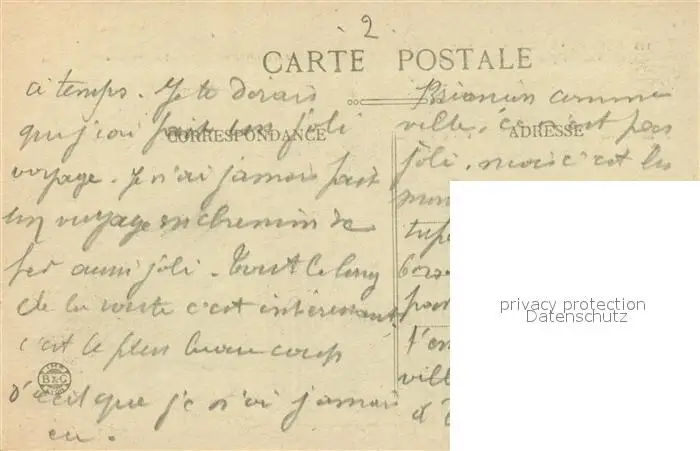 2
CARTE POSTALE
CORRESPONDANCE
ADRESSE
ci temps. Je te dirais
que j'ai fait un joli
voyage. Je n'ai jamais fait
un voyage en chemin de
fer aussi joli. Tout le long
de la route c'est intéressant
c'est le plus beau coup
d'œil que je n'ai jamais
eu.
Briancon comme
ville, ce n'est pas
joli, mais c'est les
ville
B&G
privacy protection
Datenschutz